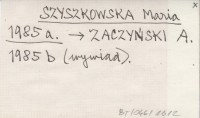 SZYSZKOWSKA Maria
1985 a. → ZACZYŃSKI A.
1985 b (wywiad).